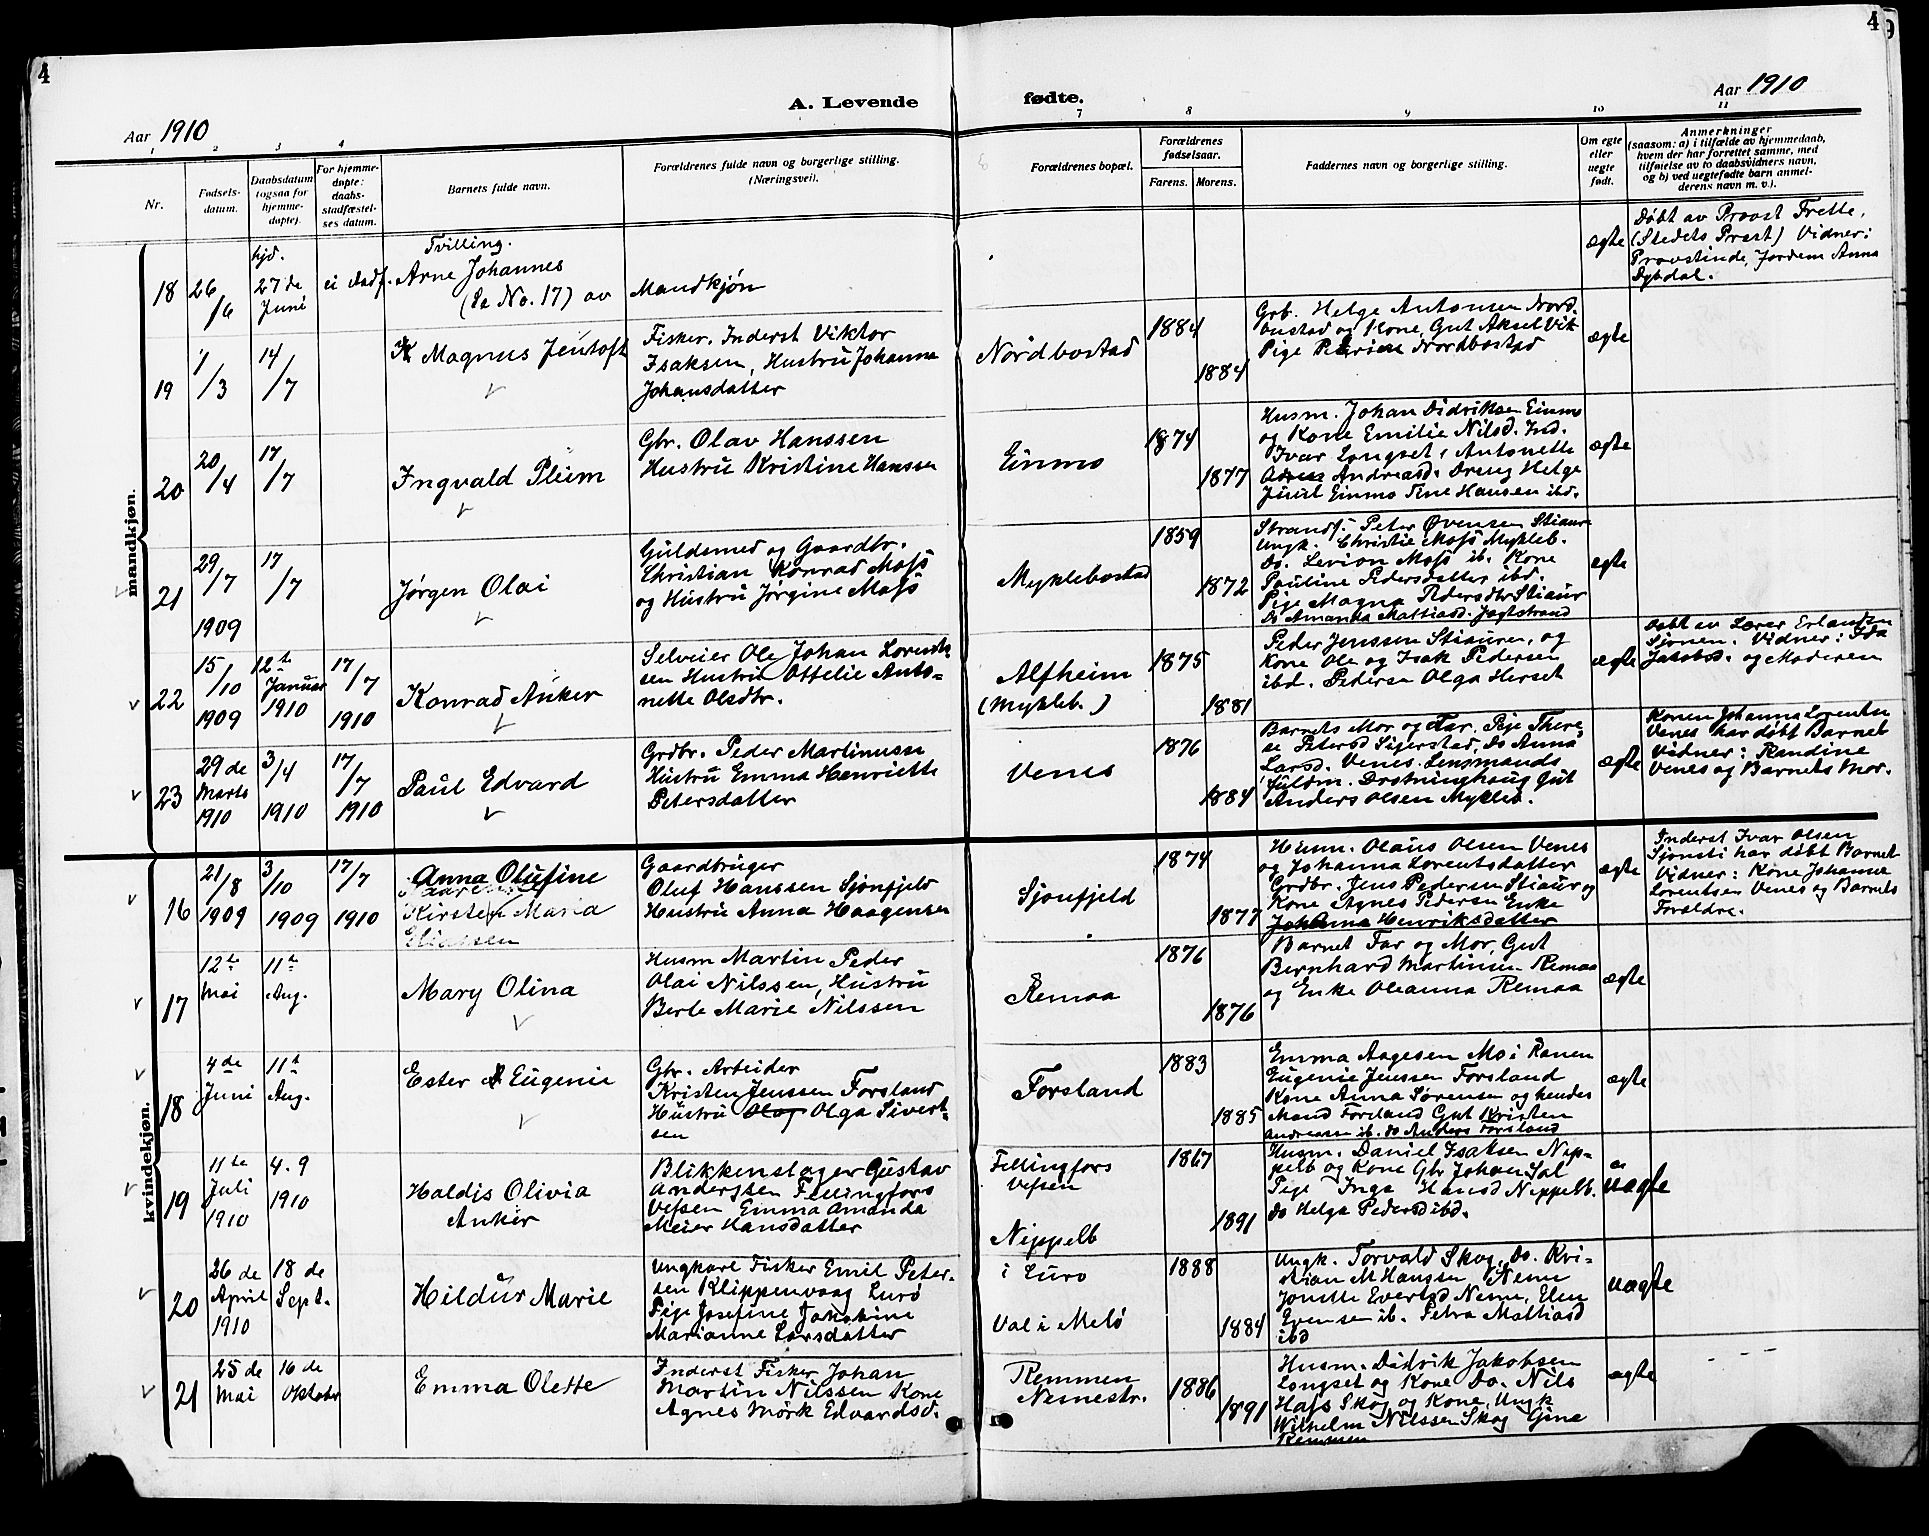 4
4
A. Levende fødte.
Aar 1910
Aar 1910
1 2 3 4 7 8 9 10 11
Nr.
Fødsels-
datum.
Daabsdatum
(ogsaa for
hjemme-
døpte).
For hjemme-
døpte:
daabs-
stadfæstel-
ses datum.
Barnets fulde navn.
Forældrenes fulde navn og borgerlige stilling.
(Næringsvei).
Forældrenes bopæl.
Forældrenes
fødselsaar.
Farens. Morens.
Faddernes navn og borgerlige stilling.
Om egte
eller
uegte
født.
Anmerkninger
(saasom: a) i tilfælde av hjemmedaab,
hvem der har forrettet samme, med
tilføielse av to daabsvidners navn,
og b) ved uegtefødte barn anmel-
derens navn m. v.).
mandkjøn.
18
26/6
hjd.
27 de
Juni
ei stadf.
Tvilling.
Arne Johannes
(se No. 17) av
Mandkjøn
ægte
Døbt av Provst Frette,
(Stedets Prest) Vidner:
Provstinde, Jordem Anna
Dybdal.
19
1/3
14/7
Magnus Jentoft
Fisker. Inderst Viktor
Isaksen, Hustru Johanna
Johansdatter
Nordbostad
1884
1884
Grb. Helge Antonsen Nord-
bostad og Kone, Gut Aksel Vik
Pige Petrine Nordbostad
ægte
20
20/4
17/7
Ingvald Pleim
Gbr. Olav Hanssen
Hustru Kristine Hanssen
Einmo
1874
1877
Husm. Johan Didriksen Einmo
og Kone Emilie Nilsd. Ind.
Ivar Longset, Antonette
Andreasd. Dreng Helge
Juul Einmo Tine Hansen ibd.
ægte
21
29/7
1909
17/7
Jørgen Olai
Guldsmed og Gaardbr.
Christian Konrad Moss
og Hustru Jørgine Moss
Myklebostad
1859
1872
Strands. Peter Øvensen Stiauren
Ungk. Christie Moss Mykleb.
Do. Levion Moss ib. Kone
Pauline Pedersdatter ibd.
Pige Magna Pedersdtr Stiaur
Do Amanda Mattiasd. Jagtstrand
ægte
22
15/10
1909
12te
Januar
1910
17/7
1910
Konrad Anker
Selveier Ole Johan Lorent-
sen Hustru Ottelie Anto-
nette Olsdtr.
Alfheim
(Mykleb.)
1875
1881
Peder Jenssen Stiauren, og
Kone Ole og Isak Pedersen
ibd. Pedersen Olga Herset
ægte
Døbt av Lærer Erlandsen
Sjonen. Vidner: Ida
Jakobsd. og Moderen
23
29 de
Marts
1910
3/4
1910
17/7
1910
Paul Edvard
Grdbr. Peder Martinusse
Hustru Emma Henriette
Petersdatter
Venes
1876
1884
Barnets Mor og Far. Pige There-
se Petersd Sigerstad, Do Anna
Larsd. Venes. Lensmands
fuldm. Drotninghaug Gut
Anders Olsen Mykleb.
ægte
Konen Johanna Lorentsn
Venes har døbt Barnet
Vidner: Randine
Venes og Barnets Mor.
kvindekjøn.
16
21/8
1909
3/10
1909
17/7
1910
Anna Olufine
Kirsten Maria
Eliassen
Gaardbruger
Oluf Hanssen Sjonfjeld
Hustru Anna Haagensen
Sjonfjeld
1874
1877
Husm. Olaus Olsen Venes
og Johanna Lorentsdatter
Grdbr. Jens Pedersen Stiaur og
Kone Agnes Pedersen Enke
Johanna Henriksdatter
ægte
Inderst Ivar Olsen
Sjonsti har døbt Barnet
Vidner: Kone Johanna
Lorentsen Venes og Barnets
Forældre.
17
12te
Mai
11te
Aug.
Mary Olina
Husm Martin Peder
Olai Nilssen, Hustru
Berte Marie Nilssen
Remaa
1876
1876
Barnet Far og Mor, Gut
Bernhard Martinsen Remaa
og Enke Oleanna Remaa
ægte
18
4de
Juni
11t
Aug.
Ester Eugenie
Gbr. Arbeider
Kristen Jenssen Forsland
Hustru Olag Olga Sivert-
sen
Forsland
1883
1885
Emma Aagesen Mo i Ranen
Eugenie Jenssen Forsland
Kone Anna Sørensen og hendes
Mand Forsland Gut Kristen
Andreasse ib. do Anders Forsland
ægte
19
11te
Juli
1910
4.9
1910
Haldis Olivia
Anker
Blikkenslager Gustav
Anderssen Fellingfors
Vefsen Emma Amanda
Meier Hansdatter
Fellingfors
Vefsen
Nippelb
1867
1891
Husm. Daniel Isaksen Nip-
pelb og Kone Gbr Johan Sal
Pige Inga Hansd Nippelb.
Do Helga Pedersd ibd.
uægte
20
26 de
April
1910
18 de
Sept.
Hildur Marie
Ungkarl Fisker Emil Peter-
sen Klippenvaag Lurø
Pige Josefine Jakobine
Marianne Larsdatter
i Lurø
Val i Melø
1888
1884
Ungk. Torvald Skog, Do. Kri-
stian M Hanssen, Nemn
Jonette Evertsd Nemn, Elen
Evensen ib. Petra Mathiasd
ibd
uægte
21
25 de
Mai
16 de
Oktober
Emma Olette
Inderst Fisker Johan
Martin Nilssen Kone
Agnes Mørk Edvardsd.
Remmen
Nemestr.
1886
1891
Husm. Didrik Jakobsen
Longset og Kone Do. Nils
Hass Skog og Kone, Ungk
Wilhelm Nilssen Skog Gine
Remmen
ægte